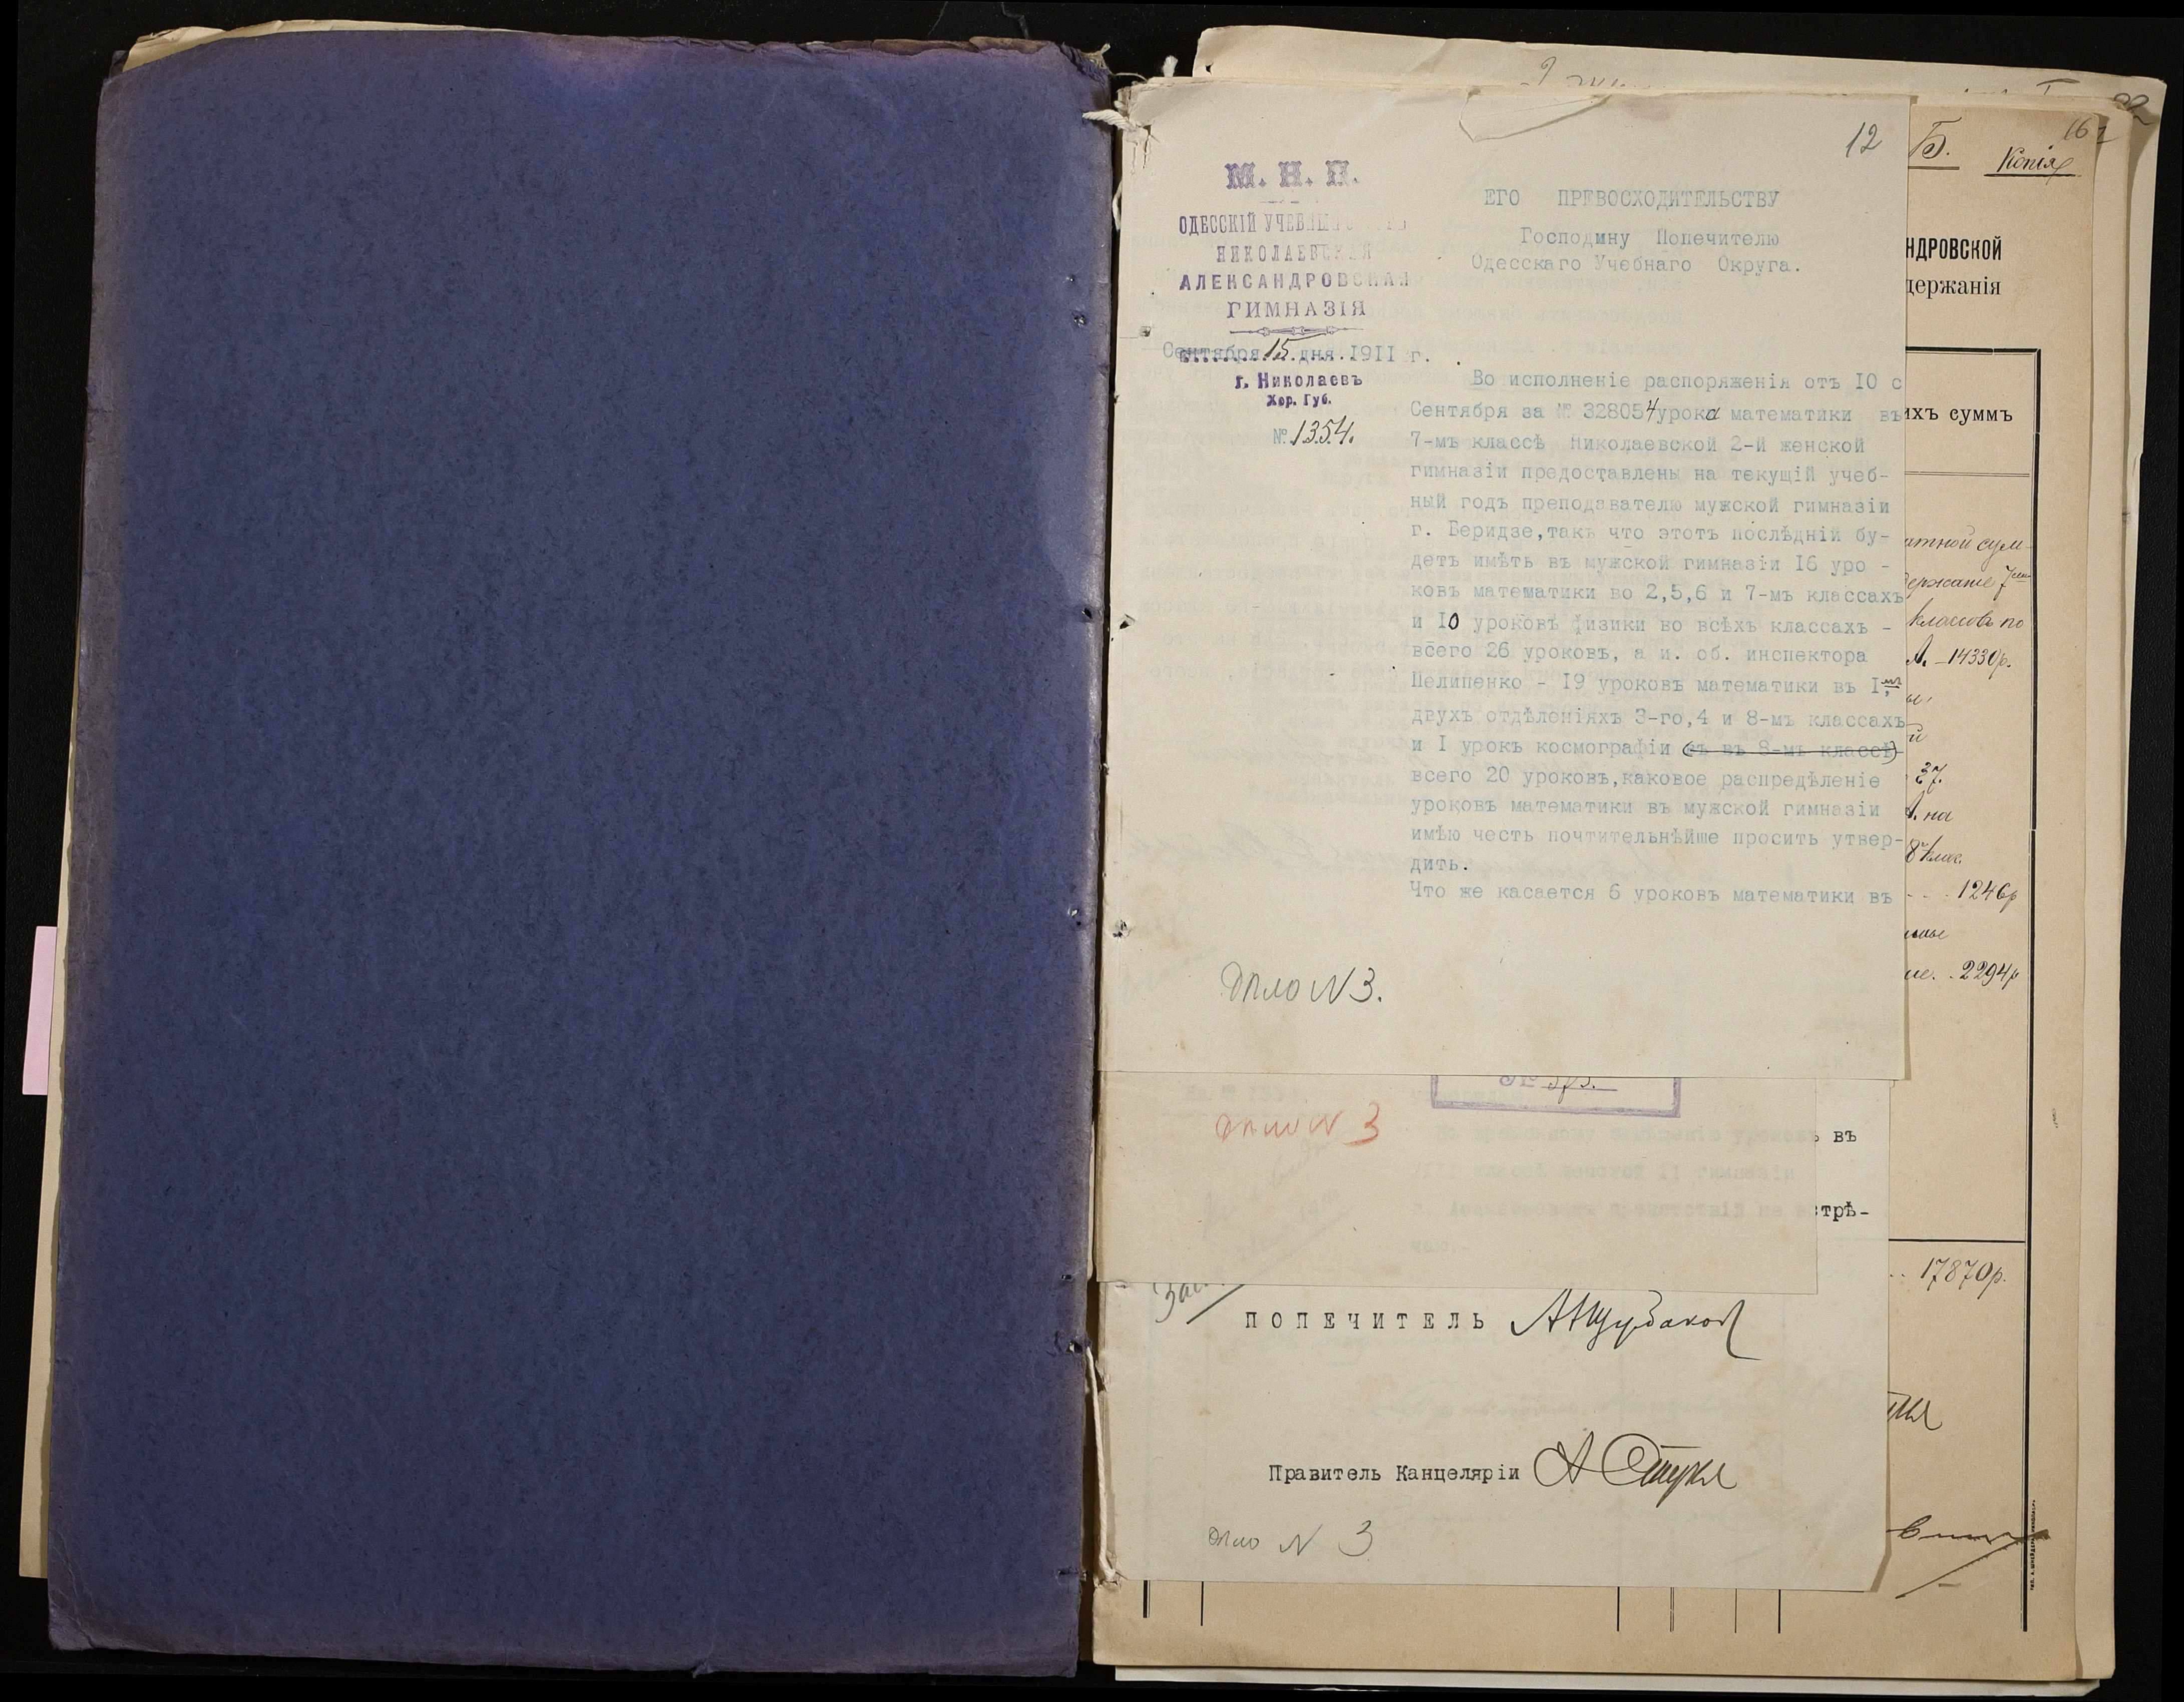 12
М. Н. П.
ОДЕССКІЙ УЧЕБНЫЙ
НИКОЛАЕВСКАЯ
АЛЕКСАНДРОВСКАЯ
ГИМНАЗІЯ
Сентября 15 дня 1911 г.
г. Николаевъ
Хер. Губ.
№ 1354.
ЕГО ПРЕВОСХОДИТЕЛЬСТВУ
Господину Попечителю
Одесскаго Учебнаго Округа.
Во исполненіе распоряженія отъ 10 с
Сентября за № 32805 4 урока математики въ
7-мъ классѣ Николаевской 2-й женской
гимназіи предоставлены на текущій учеб-
ный годъ преподавателю мужской гимназіи
г. Беридзе, такъ что этотъ послѣдній бу-
детъ имѣть въ мужской гимназіи 16 уро -
ковъ математики во 2,5,6 и 7-мъ классахъ
и 10 уроковъ физики во всѣхъ классахъ -
всего 26 уроковъ, а и. об. инспектора
Пелипенко - 19 уроковъ математики въ 1мъ,
двухъ отдѣленіяхъ 3-го,4 и 8-мъ классахъ
и I урокъ космографіи (въ въ 8-мъ классѣ)
всего 20 уроковъ, каковое распредѣленіе
уроковъ математики въ мужской гимназіи
имѣю честь почтительнѣйше просить утвер-
дить.
Что же касается 6 уроковъ математики въ
Дѣло N 3.
Дѣло N 3
въ
стрѣ-
ПОПЕЧИТЕЛЬ АЩербаков
Правитель Канцеляріи А Стукл
Дѣло N 3
162
Б. Копія
НДРОВСКОЙ
держанія
ихъ суммъ
атной сум-
держаніе 7ми
классовъ по
А. - 14330р.
37.
А. на
8 клас.
1246р
2294р
17870р.